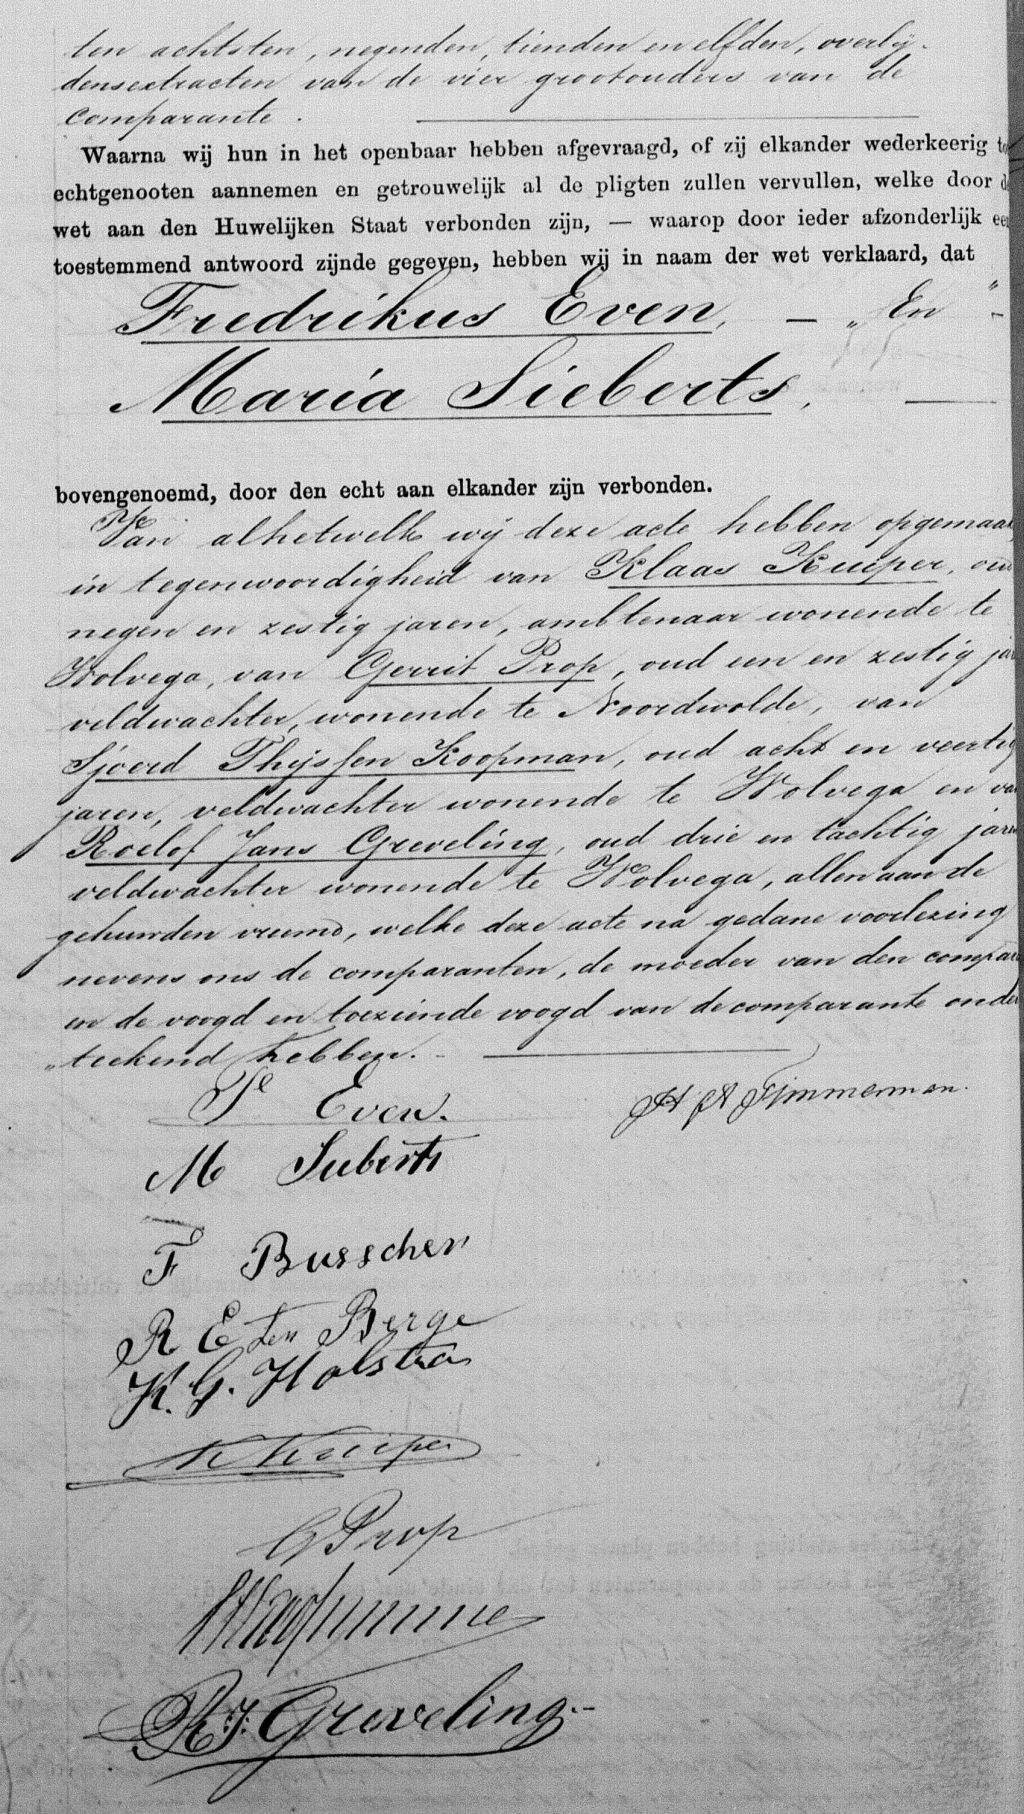 ten achtsten, negenden, tienden en elfden, overlij-
densextracten van de vier grootouders van de
comparante.
Waarna wij hun in het openbaar hebben afgevraagd, of zij elkander wederkeerig to
echtgenooten aannemen en getrouwelijk al de pligten zullen vervullen, welke door d
wet aan den Huwelijken Staat verbonden zijn, — waarop door ieder afzonderlijk ee
toestemmend antwoord zijnde gegeven, hebben wij in naam der wet verklaard, dat
Fredrikus Even, — „ En „ -
Maria Sieberts,
bovengenoemd, door den echt aan elkander zijn verbonden.
Van alhetwelk wij deze acte hebben opgemaa
in tegenwoordigheid van Klaas Kuiper, oud
negen en zestig jaren, ambtenaar wonende te
Wolvega, van Gerrit Prop, oud een en zestig jar
veldwachter, wonende te Noordwolde, van
Sjoerd Thijssen Koopman, oud acht en veertig
jaren, veldwachter wonende te Wolvega en va
Roelof Jans Greveling, oud drie en tachtig jaren
veldwachter wonende te Wolvega, allen aan de
gehuwden vreemd, welke deze acte na gedane voorlezing
nevens ons de comparanten, de moeder van den compara
en de voogd en toeziende voogd van de comparante onder
„teekend hebben.
Even.
H A Timmerman.
M Sieberts
F Busscher
R E ten Berge
K. G. Holstra
K Kuiper
G Prop
R. J. Greveling.